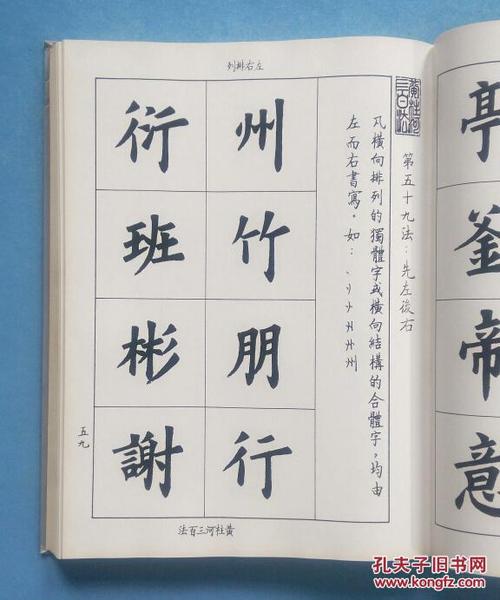 亭
釜
帝
意
左右排列
第五十九法：先左後右
凡橫向排列的獨體字或橫向結構的合體字，均由
左而右書寫。如：州
州
竹
朋
行
衍
班
彬
謝
五九
黄社河三百法
孔夫子旧书网
www.kongfz.com